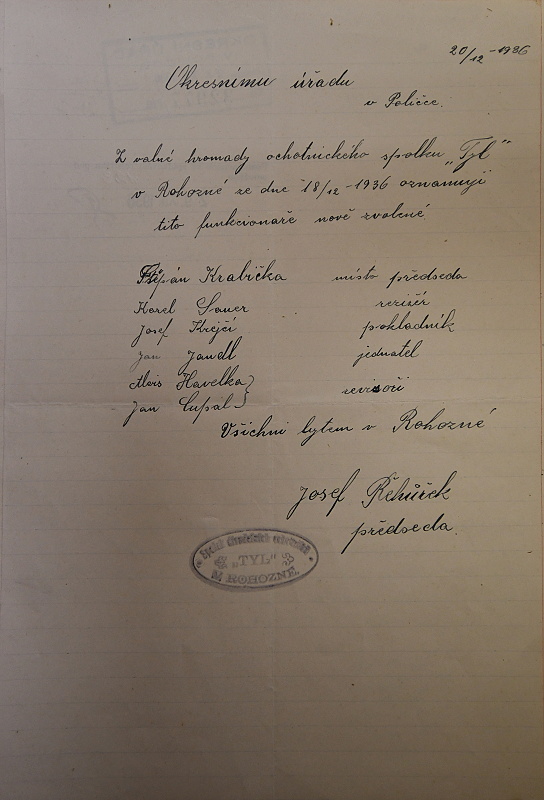 20/12 - 1936
Okresnímu úřadu
v Poličce.
Z valné hromady ochotnického spolku "Tyl"
v Rohozné ze dne 18/12 - 1936 oznamuji
tito funkcionaře nově zvolené
Štěpán Krabička místo předseda
Karel Sauer režisér
Josef Krejčí pokladník
Jan Jandl jednatel
Alois Havelka }
Jan Cupál } revisoři
Všichni bytem v Rohozné
Josef Řehůřek
předseda.
"TYL"
ROHOZNÉ